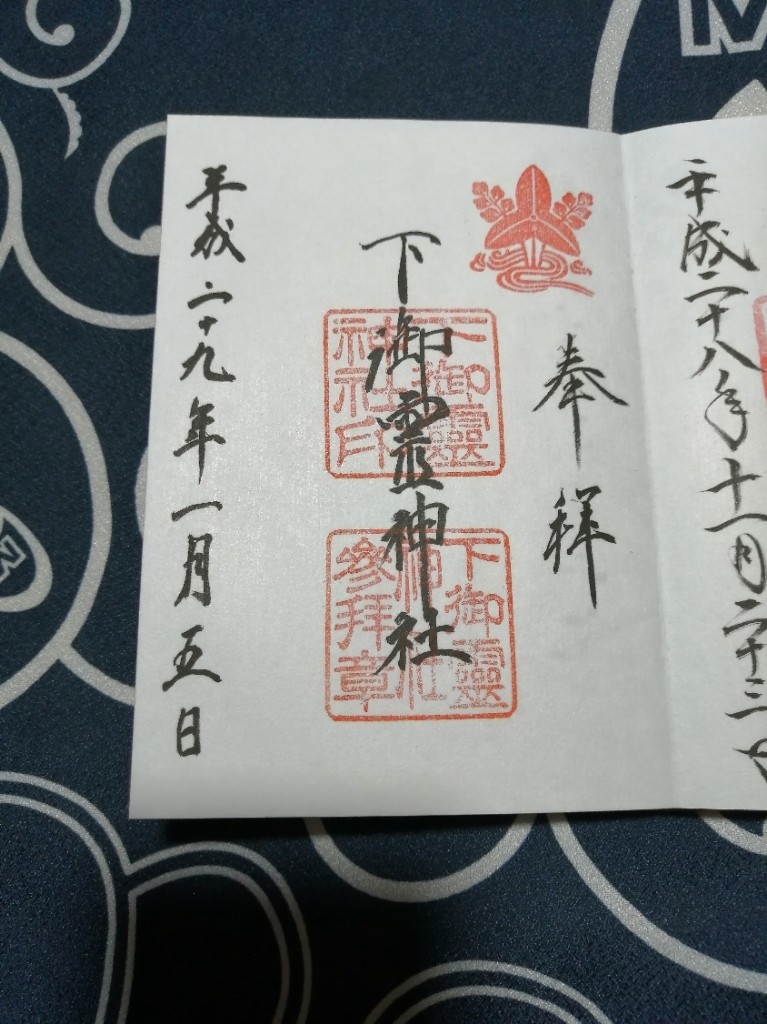 平成二十八年十一月二十三日
奉拜
下御靈神社
下御靈
神社印
下御靈
神社
參拜章
平成二十九年一月五日
M